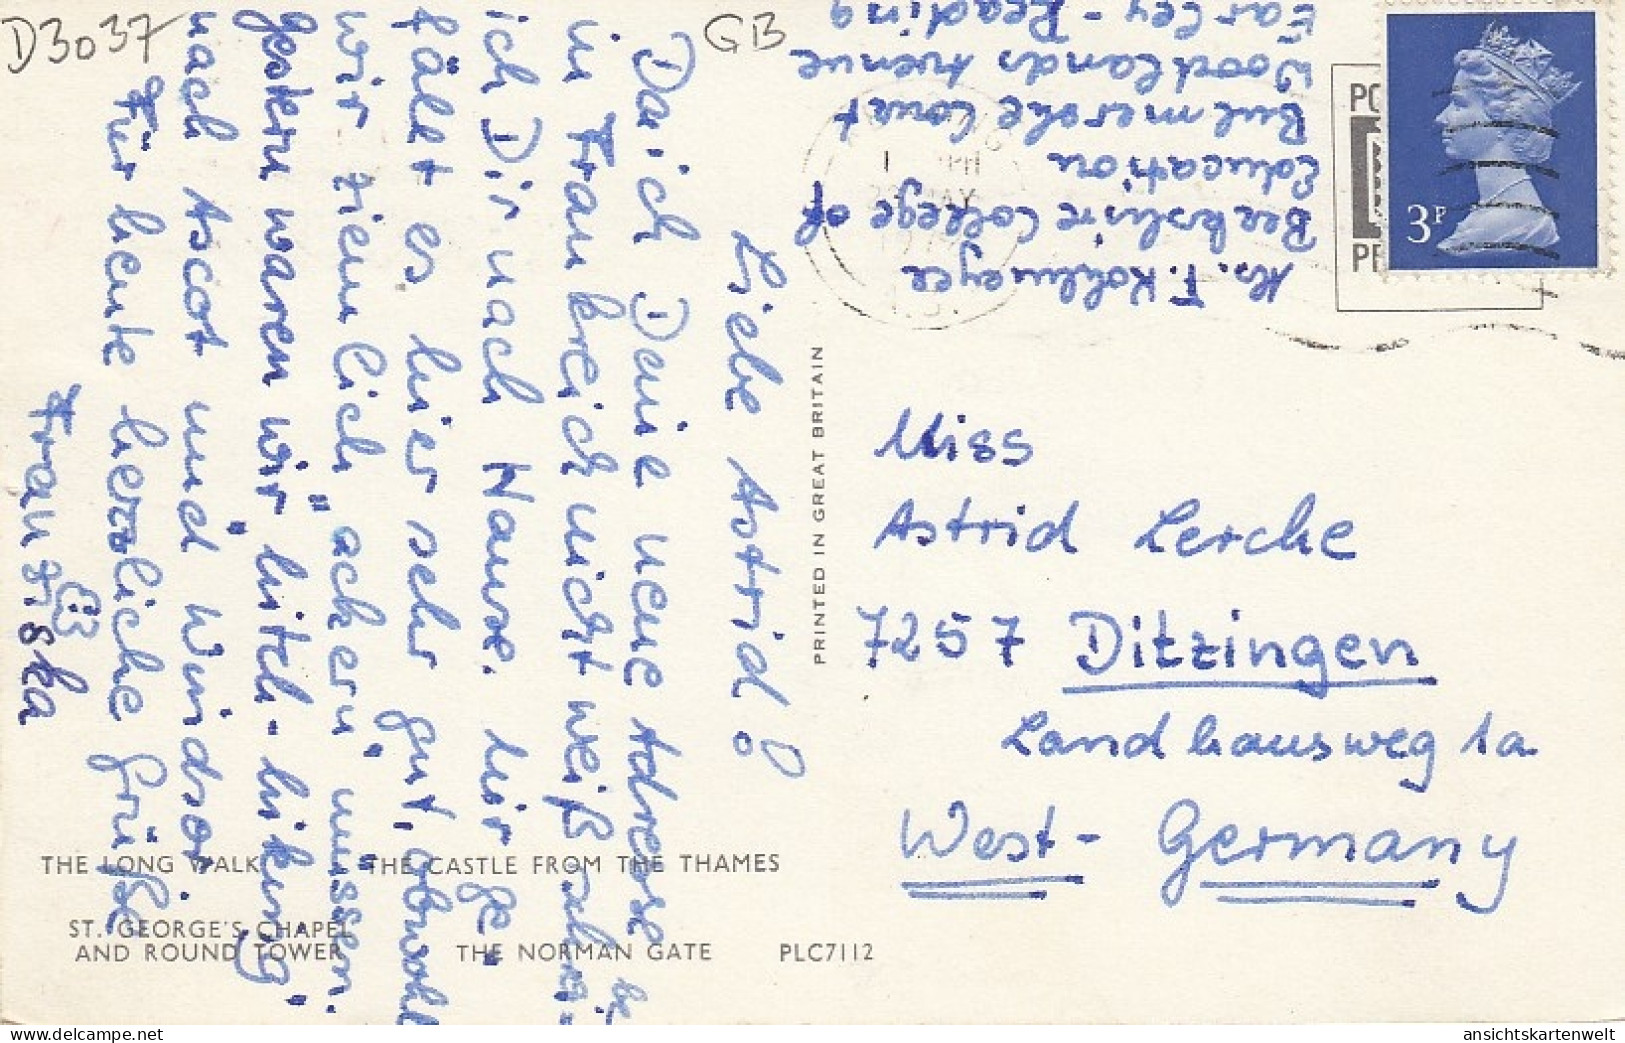 D3037
GB
Liebe Astrid!
Da ich Deine neue Adresse
in Frankreich nicht weiß,
ich Dir nach Hause. Mir ge-
fällt es hier sehr gut, obwohl
wir ziemlich "ackern" müssen.
Gestern waren wir "hitch-hiking"
nach Ascot und Windsor.
Für heute herzliche Grüße
Franziska
F. Kohlmeyer
Berkshire College of
Education
Bulmershe Court
Woodlands Avenue
Earley - Reading
3P
MAY
PRINTED IN GREAT BRITAIN
Miss
Astrid Lerche
7257 Ditzingen
Landhausweg 1a
West-Germany
THE LONG WALK
THE CASTLE FROM THE THAMES
ST. GEORGE'S CHAPEL
AND ROUND TOWER
THE NORMAN GATE
PLC7112
hosted on delcampe.net
ansichtskartenwelt